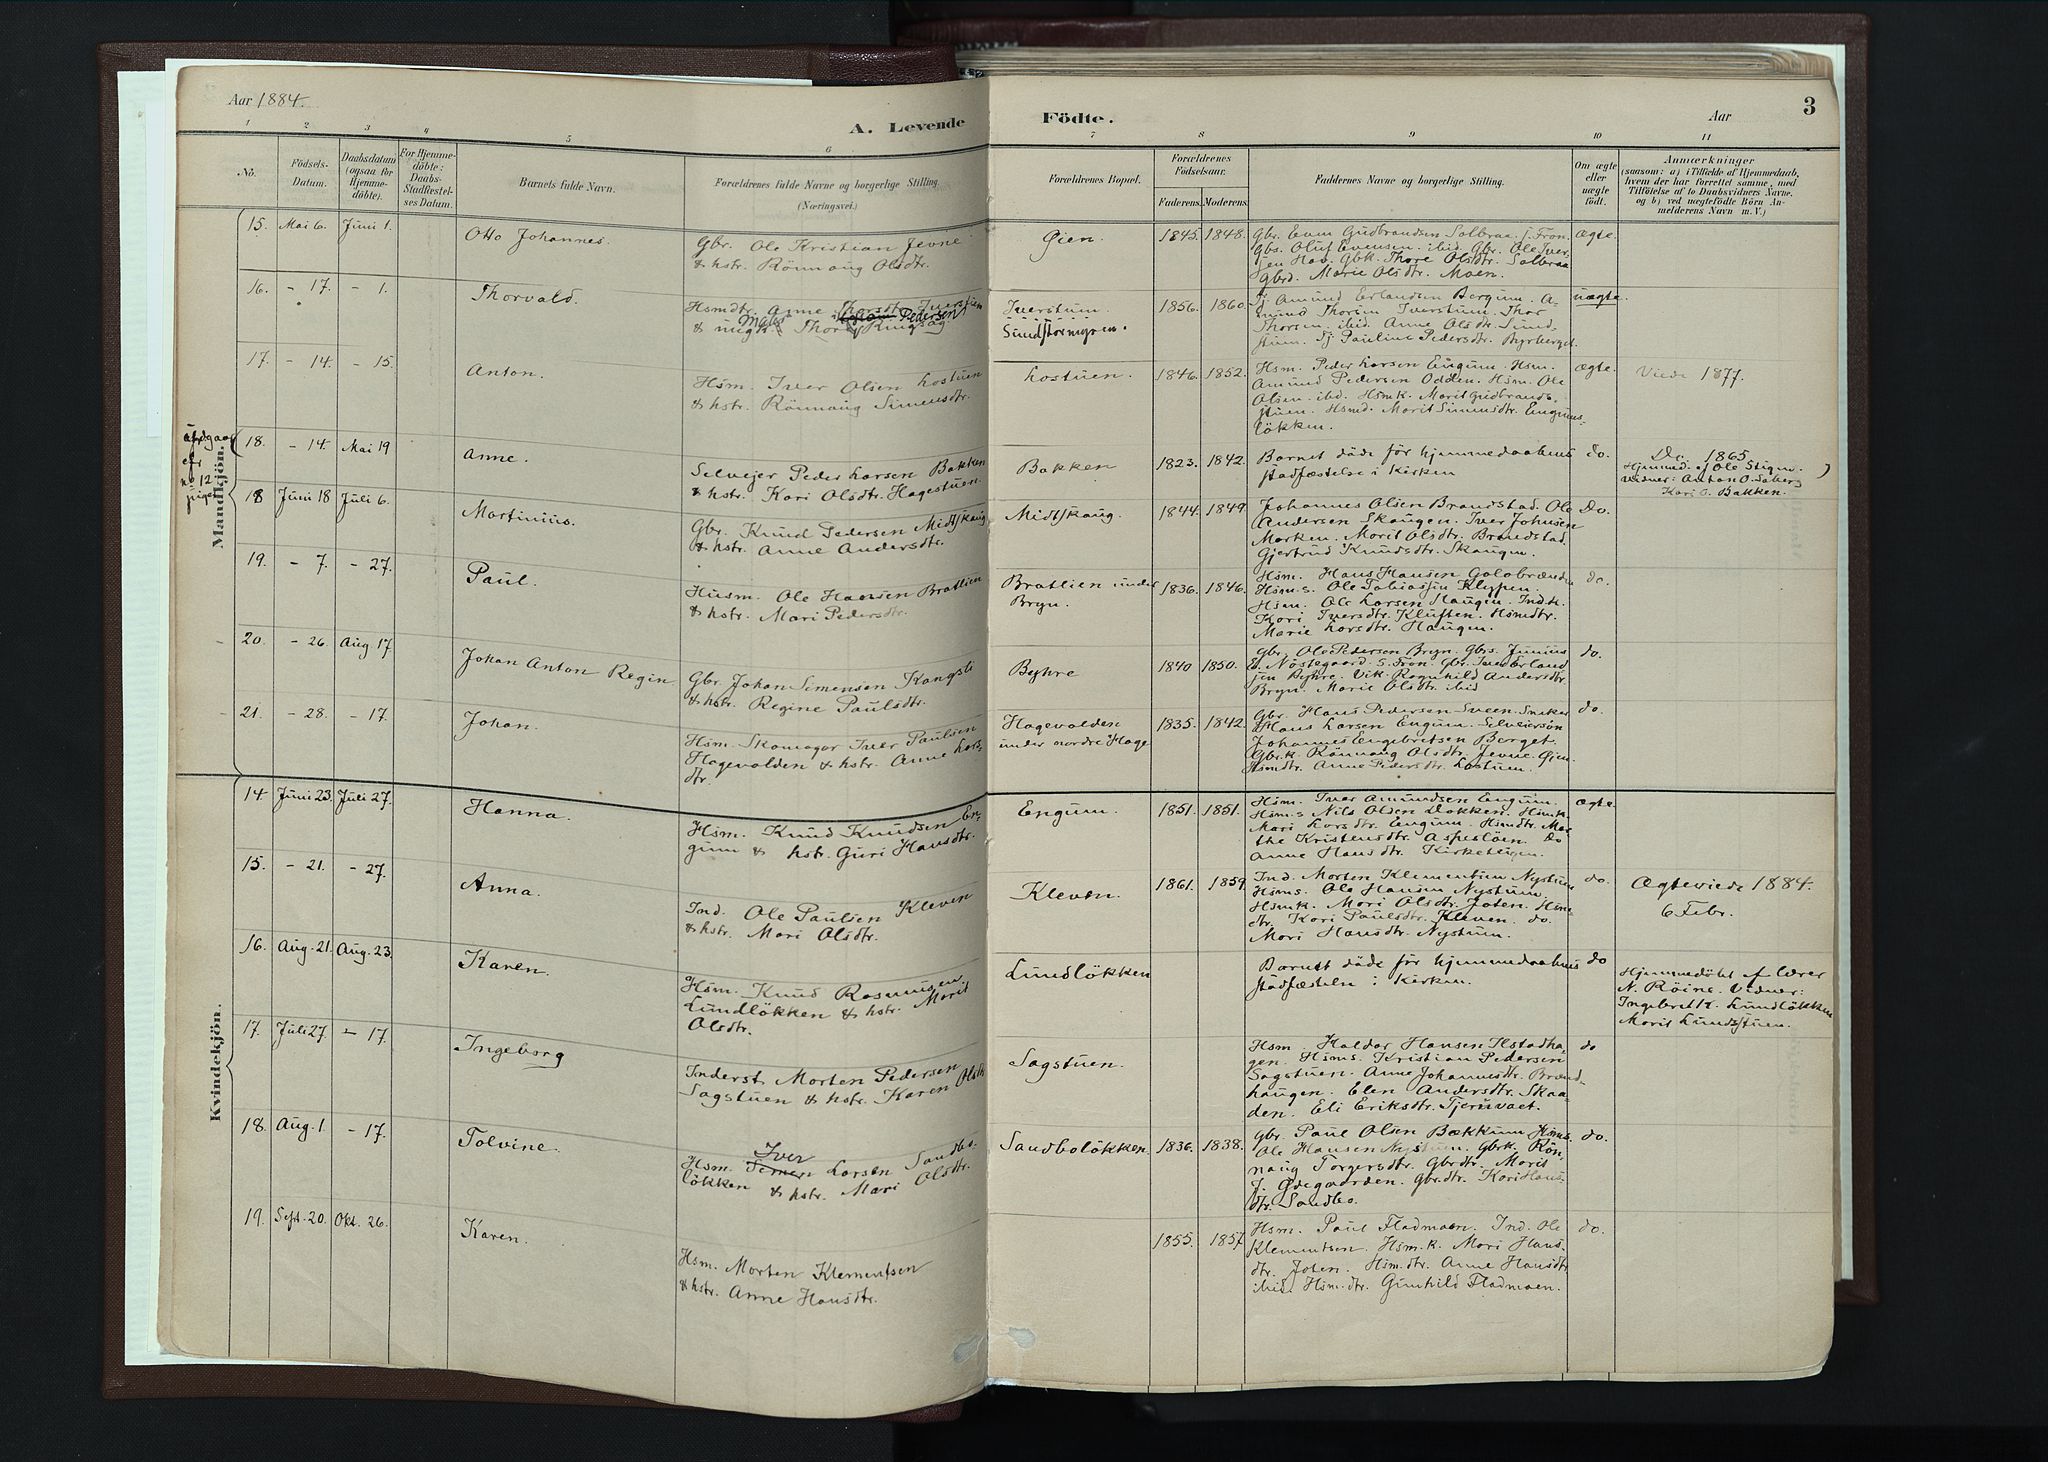 Aar 1884.
A. Levende Födte.
Aar
3
1 2 3 4 5 6 7 8 9 10 11
No.
Födsels-Datum.
Daabsdatum (ogsaa for Hjemmedöbte).
For Hjemmedöbte: Daabs-Stadfæstelses Datum.
Barnets fulde Navn.
Forældrenes fulde Navne og borgerlige Stilling. (Næringsvei.)
Forældrenes Bopæl.
Forældrenes Födselsaar.
Faderens. Moderens.
Faddernes Navne og borgerlige Stilling.
Om ægte eller uægte födt.
Anmærkninger
(saasom: a) i Tilfælde af Hjemmedaab,
hvem der har forrettet samme, med
Tilföielse af to Daabsvidners Navne,
og b) ved uægtefödte Börn Anmelderens Navn m. V.)
Mandkjön.
15. Mai 6. Juni 1. Otto Johannes.
Gbr. Ole Kristian Jevne
& hstr. Rönnaug Olsdtr.
Øien. 1845. 1848.
Gbr. Even Gudbrandsen Solbraa. S. Fron.
Gbs. Oluf Evensen. ibid. Gbr. Ole Iver-
sen Hov. Gbk. Thore Olsdtr. Solbraa
Gbrd. Marie Olsdtr. Moen.
ægte.
16. - 17. - 1. Thorvald.
Hsmdtr. Anne Thorsdtr. Iverstuen
& ungk. Pedersen
Iverstuen.
Sundstormyren.
1856. 1860.
Amund Erlandsen Bergum. A-
mund Thorsen Iverstuen. Thor
Thorsen. ibid. Anne Olsdtr. Sund-
stuen. Pj Pauline Pedersdtr. Byrberget.
uægte.
17. - 14. - 15. Anton.
Hsm. Iver Olsen Lostuen
& hstr. Rönnaug Simensdtr.
Lostuen. 1846. 1852.
Hsm. Peder Larsen Engum. Hsm.
Amund Pedersen Odden. Hsm. Ole
Olsen. ibid. Hsmk. Marit Gudbrands-
stuen. Hsmd. Marit Simensdtr. Engums-
lökken.
ægte. Viede 1877.
18. - 14. Mai 19 Anne.
Selvejer Peder Larsen Bakken
& hstr. Kari Olsdtr. Hagestuen.
Bakken 1823. 1842.
Barnet döde för hjemmedaabens
stadfæstelse i Kirken
do. Do. 1865
Hjemmd. af Ole Stigen.
Vidner: Anton O. Soberg
Kari O. Bakken.
18 Juni 18 Juli 6. Martinius.
Gbr. Knud Pedersen Midtskaug
& hstr. Anne Andersdtr.
Midtskaug. 1844. 1849.
Johannes Olsen Brandstad. Ole
Andersen Skaugen. Iver Johnsen
Marken. Marit Olsdtr. Brandstad.
Gjertrud Knudsdtr. Skaugen.
Do.
19. - 7. - 27. Paul.
Husm. Ole Hansen Bratlien
& hstr. Mari Pedersdtr.
Bratlien under
Bryn.
1836. 1846.
Hsm. Hans Hansen Golobrænden
Hsm.s. Ole Tobiassen Klypen.
Hsm. Ole Larsen Haugen. Ind.k.
Kari Iversdtr. Kluften. Hsmdtr.
Marie Larsdtr. Haugen.
do.
20. - 26. Aug 17. Johan Anton Regin
Gbr. Johan Simensen Kongsli
& hstr. Regine Paulsdtr.
Byhre 1840 1850.
Gbr. Ole Pedersen Bryn. Gbrs. Junius
D. Nöstegaard. S. Fron. Gbr. Iver Erland
sen Byhre. Vik. Ragnhild Andersdtr.
Bryn. Marie Olsdtr. ibid
do.
21. - 28. - 17. Johan.
Hsm. Skomager Iver Paulsen
Hagevolden & hstr. Anne Lars-
dtr.
Hagevolden
under nordre Hage
1835. 1842.
Gbr. Hans Pedersen Sveen. Snekker
Hans Larsen Engum. Selveiersön
Johannes Engebretsen Berget.
Gbr.k. Rönnaug Olsdtr. Jevne. Øien.
Hsmdtr. Anne Pedersdtr. Lostuen.
do.
Kvindekjön.
14. Juni 23. Juli 27. Hanna.
Hsm. Knud Knudsen En-
gum & hstr. Guri Hansdtr.
Engum. 1851. 1851.
Hsm. Iver Amundsen Engum.
Hsm.s Nils Olsen Dokken. Hsmk.
Mari Larsdtr. Engum. Hsmdtr. Mar-
the Kristensdtr. Aspeslöen. Do
Anne Hansdtr. Kirketeigen.
ægte
15. - 21. - 27. Anna.
Ind. Ole Paulsen Kleven
& hstr. Mari Olsdtr.
Kleven. 1861. 1859.
Ind. Morten Klementsen Nystuen
Hsms. Ole Hansen Nystuen
Hsmk. Mari Olsdtr. Joten. Hsm-
dtr. Kari Paulsdtr. Kleven. do.
Mari Hansdtr. Nystuen.
do. Ægteviede 1884.
6 Febr.
16. Aug. 21. Aug. 23. Karen.
Hsm. Knud Rasmussen
Lundlökken & hstr. Marit
Olsdtr.
Lundlökken
Barnet döde för hjemmedaabens
stadfæstelse i Kirken.
do Hjemmedöbt af Lærer
N. Röine. Vidner:
Ingebret K. Lundlökken
Marit Lundstuen.
17. Juli 27. - 17. Ingeborg
Inderst Morten Pedersen
Sagstuen & hstr. Karen Olsdtr
Sagstuen.
Hsm. Haldor Hansen Ilstadha-
gen. Hsms. Kristian Pedersen
Sagstuen. Anne Johannesdtr. Brænd-
haugen. Elen Andersdtr. Skaa-
den. Eli Eriksdtr. Tjernvaet.
do
18. Aug. 1. - 17. Tolvine.
Iver
Hsm. Simen Larsen Sandbo-
lökken & hstr. Mari Olsdtr.
Sandbolökken 1836. 1838.
Gbr. Paul Olsen Bækkum Hsms.
Ole Hansen Nystuen. Gbrk. Rön-
naug Torgersdtr. Gbrdtr. Marit
J. Ødegaarden. Gbrdtr. Kari Hans-
dtr. Sandbo.
do.
19. Sept. 20. Okt. 26. Karen.
Hsm. Morten Klementsen
& hstr. Anne Hansdtr.
1855. 1857
Hsm. Paul Fladmoen. Ind. Ole
Klementsen. Hsm.k. Mari Hans-
dtr. Joten. Hsm.dtr. Anne Hansdtr
ibid. Hsm.dtr. Gunhild Fladmoen.
do.